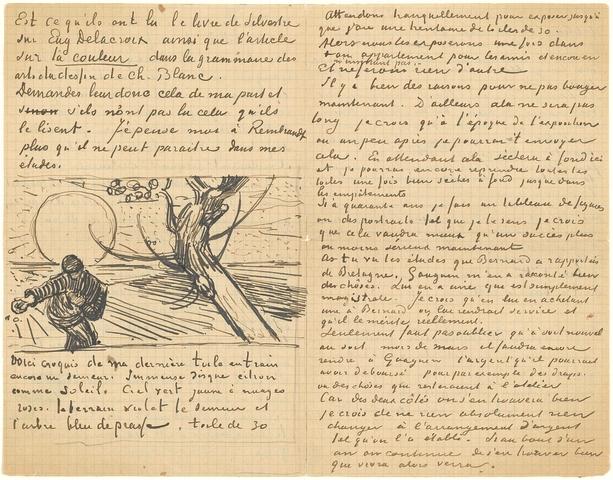 Est ce qu'ils ont lu le livre de Silvestre
sur Eug Delacroix ainsi que l'article
sur la couleur dans la grammaire des
arts du dessin de Ch. Blanc.
Demandes leur donc cela de ma part et
sinon s'ils n'ont pas lu cela qu'ils
le lisent. J'pense moi à Rembrandt
plus qu'il ne peut paraitre dans mes
études.
Voici croquis de ma dernière toile en train
encore un semeur. Immense disque citron
comme soleil. Ciel vert jaune à nuages
roses. le terrain violet le semeur et
l'arbre bleu de prusse. toile de 30
Attendons tranquillement pour exposer jusqu'à
que j'aie une trentaine de toiles de 30.
Alors nous les exposerons une fois dans
ton appartement pour les amis et encore en
n'insistant pas.
Et ne ferons rien d'autre
Il y a bien des raisons pour ne pas bouger
maintenant. D'ailleurs cela ne sera pas
long je crois qu'à l'époque de l'exposition
ou un peu après je pourrai t'envoyer
cela. En attendant cela sèchera à fond ici
et je pourrai encore reprendre toutes les
toiles une fois bien sèches à fond jusque dans
les empâtements
Si à quarante ans je fais un tableau de figures
ou des portraits tel que je le sens je crois
que cela vaudra mieux qu'un succès plus
ou moins sérieux maintenant
As tu vu les études que Bernard a rapportées
de Bretagne, Gauguin m'en a raconté bien
des choses. Lui en a une qui est simplement
magistrale. Je crois qu'en lui en achetant
une à Bernard on lui rendrait service et
qu'il le mérite réellement.
Seulement faut pas oublier qu'à nouvel
an soit mois de mars il faudra encore
rendre à Gauguin l'argent qu'il pourrait
avoir déboursé pour par exemple des draps.
ou des choses qui resteraient à l'atelier
Car des deux côtés on s'en trouvera bien
je crois de ne rien absolument rien
changer à l'arrangement d'argent
tel qu'on l'a établi. Si au bout d'un
an on continue de s'en trouver bien
que vivra alors verra.